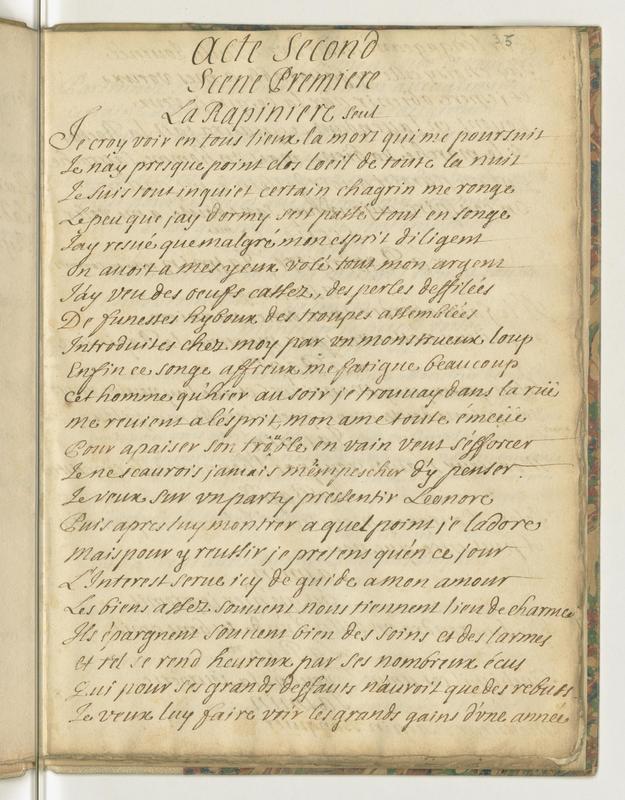 35
Acte Second
Scene Premiere
La Rapiniere seul
Je croy voir en tous lieux la mort qui me poursuit
Je n'ay presque point clos l'oeil de toute la nuit
Je suis tout inquiet certain chagrin me ronge
Le peu que j'ay dormy s'est passé tout en songe
J'ay resué que malgré mon esprit diligent
On auoit a mes yeux volé tout mon argent
J'ay veu des oeufs cassez, des perles deffilées
De funestes hyboux des troupes assemblées
Introduites chez moy par vn monstrueux loup
Enfin ce songe affreux me fatigue beaucoup
Cet homme qu'hier au soir je trouuay dans la rüe
me reuient a l'ésprit, mon ame toute emeüe
Pour apaiser son trouble en vain veut s'éfforcer
Je ne scaurois jamais m'empescher d'y penser.
Je veux sur vn party pressentir Leonore
Puis apres luy montrer a quel point je l'adore
Mais pour y reussir je pretens qu'en ce jour
L'Interest serue icy de guide a mon amour
Les biens assez souuent nous tiennent lieu de charmes
Ils épargnent souuent bien des soins et des larmes
Et tel se rend heureux par ses nombreux écus
Qui pour ses grands deffauts n'auroit que des rebuts
Je veux luy faire voir les grands gains d'vne année